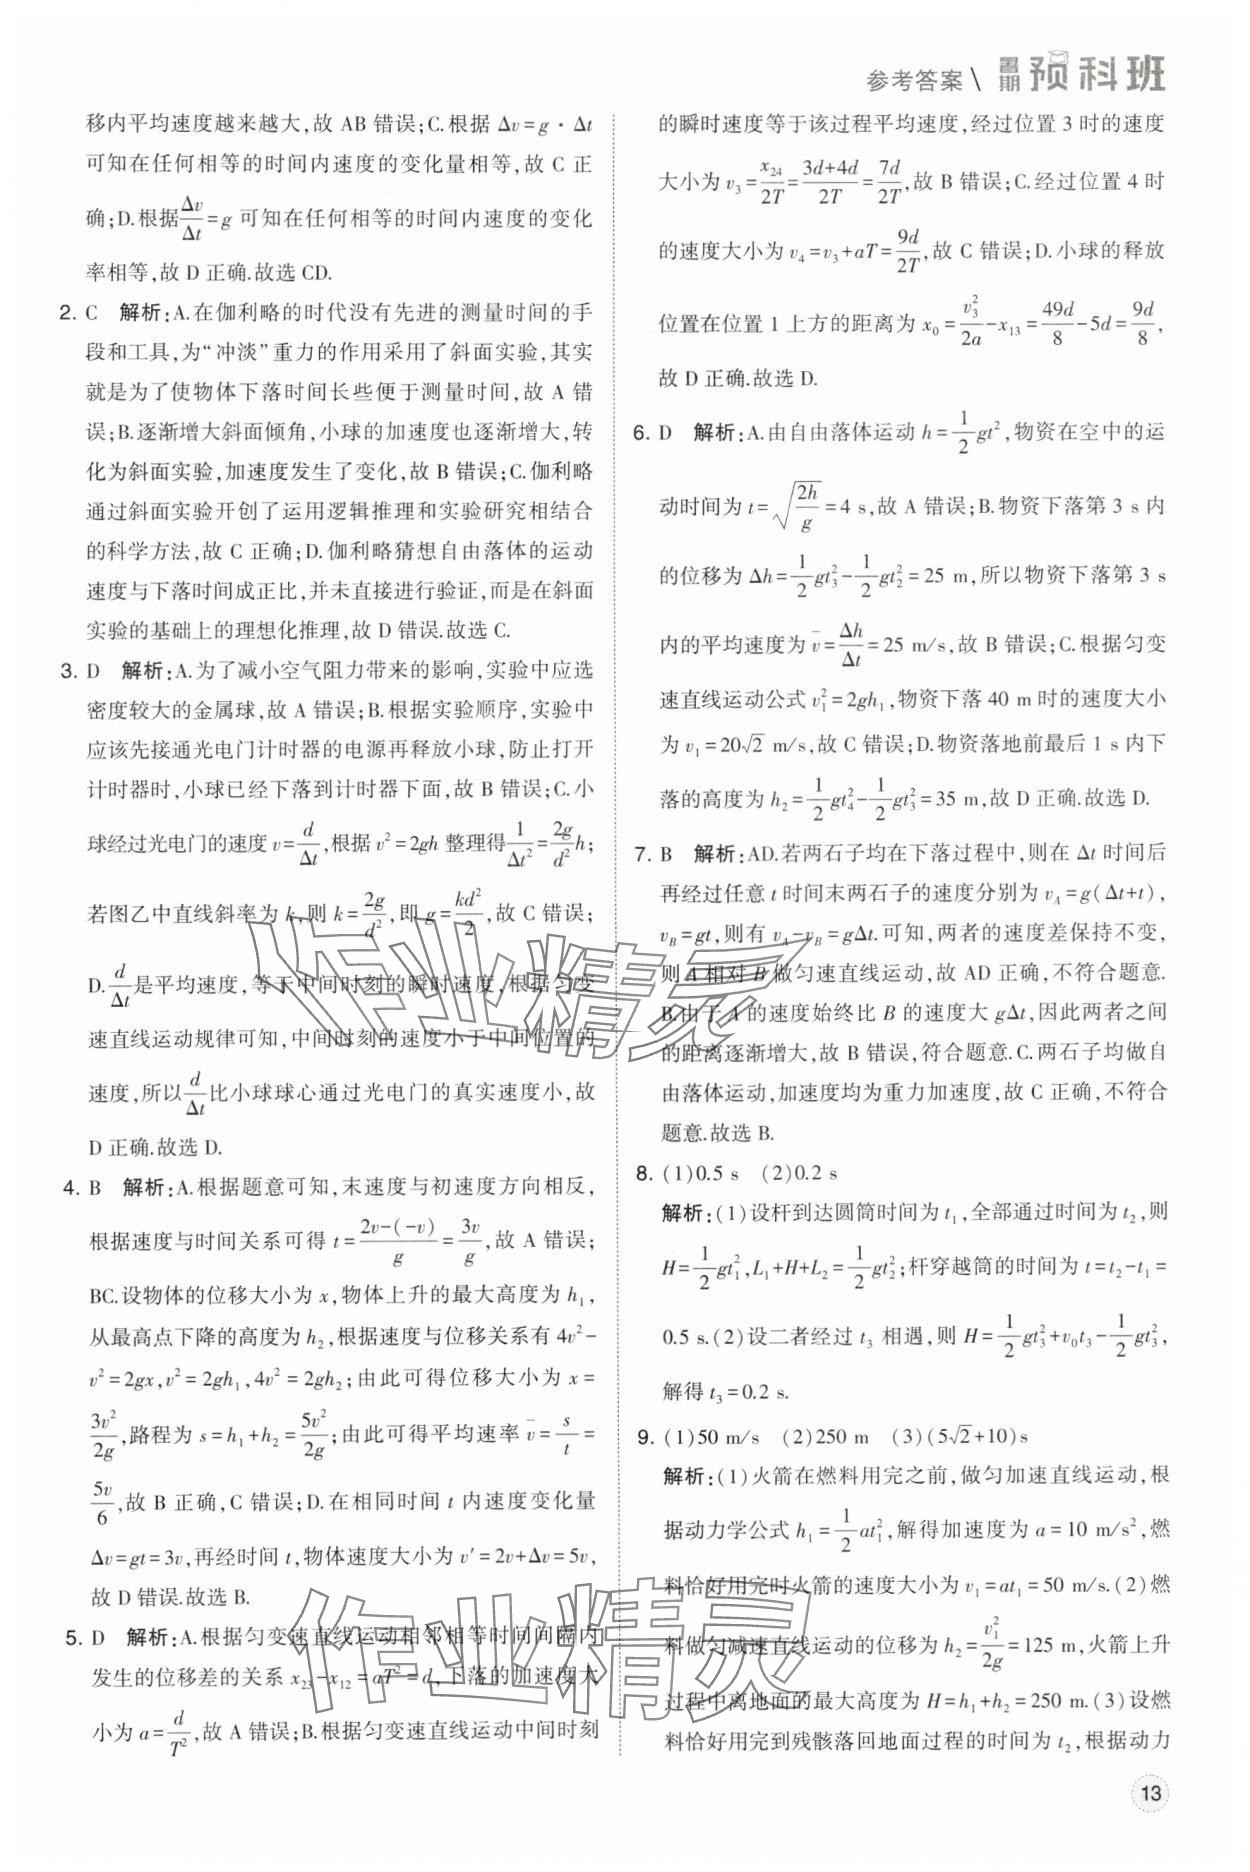 参考答案\暑期预科班
移内平均速度越来越大,故 AB 错误;C.根据 Δv=g·Δt
可知在任何相等的时间内速度的变化量相等,故 C 正
确;D.根据Δv/Δt=g 可知在任何相等的时间内速度的变化
率相等,故 D 正确.故选 CD.
2. C 解析:A.在伽利略的时代没有先进的测量时间的手
段和工具,为“冲淡”重力的作用采用了斜面实验,其实
就是为了使物体下落时间长些便于测量时间,故 A 错
误;B.逐渐增大斜面倾角,小球的加速度也逐渐增大,转
化为斜面实验,加速度发生了变化,故 B 错误;C.伽利略
通过斜面实验开创了运用逻辑推理和实验研究相结合
的科学方法,故 C 正确;D.伽利略猜想自由落体的运动
速度与下落时间成正比,并未直接进行验证,而是在斜面
实验的基础上的理想化推理,故 D 错误.故选 C.
3. D 解析:A.为了减小空气阻力带来的影响,实验中应选
密度较大的金属球,故 A 错误;B.根据实验顺序,实验中
应该先接通光电门计时器的电源再释放小球,防止打开
计时器时,小球已经下落到计时器下面,故 B 错误;C.小
球经过光电门的速度 v=d/Δt,根据 v²=2gh 整理得1/Δt²=2g/d² h;
若图乙中直线斜率为 k,则 k=2g/d²,即 g=kd²/2,故 C 错误;
D.d/Δt是平均速度,等于中间时刻的瞬时速度,根据匀变
速直线运动规律可知,中间时刻的速度小于中间位置的
速度,所以d/Δt比小球球心通过光电门的真实速度小,故
D 正确.故选 D.
4. B 解析:A.根据题意可知,末速度与初速度方向相反,
根据速度与时间关系可得 t=(2v-(-v))/g=3v/g,故 A 错误;
BC.设物体的位移大小为 x,物体上升的最大高度为 h₁,
从最高点下降的高度为 h₂,根据速度与位移关系有 4v²-
v²=2gx,v²=2gh₁,4v²=2gh₂;由此可得位移大小为 x=
3v²/2g,路程为 s=h₁+h₂=5v²/2g;由此可得平均速率 v̄=s/t=
5v/6,故 B 正确,C 错误;D.在相同时间 t 内速度变化量
Δv=gt=3v,再经时间 t,物体速度大小为 v′=2v+Δv=5v,
故 D 错误.故选 B.
5. D 解析:A.根据匀变速直线运动相邻相等时间间隔内
发生的位移差的关系 x₂₃-x₁₂=aT²=d,下落的加速度大
小为 a=d/T²,故 A 错误;B.根据匀变速直线运动中间时刻
的瞬时速度等于该过程平均速度,经过位置 3 时的速度
大小为 v₃=x₂₄/2T=(3d+4d)/2T=7d/2T,故 B 错误;C.经过位置 4 时
的速度大小为 v₄=v₃+aT=9d/2T,故 C 错误;D.小球的释放
位置在位置 1 上方的距离为 x₀=v₃²/2a-x₁₃=49d/8-5d=9d/8,
故 D 正确.故选 D.
6. D 解析:A.由自由落体运动 h=1/2 gt²,物资在空中的运
动时间为 t=√(2h/g)=4 s,故 A 错误;B.物资下落第 3 s 内
的位移为 Δh=1/2 gt₃²-1/2 gt₂²=25 m,所以物资下落第 3 s
内的平均速度为 v̄=Δh/Δt=25 m/s,故 B 错误;C.根据匀变
速直线运动公式 v₁²=2gh₁,物资下落 40 m 时的速度大小
为 v₁=20√2 m/s,故 C 错误;D.物资落地前最后 1 s 内下
落的高度为 h₂=1/2 gt₄²-1/2 gt₃²=35 m,故 D 正确.故选 D.
7. B 解析:AD.若两石子均在下落过程中,则在 Δt 时间后
再经过任意 t 时间末两石子的速度分别为 v_A=g(Δt+t),
v_B=gt,则有 v_A-v_B=gΔt.可知,两者的速度差保持不变,
则 A 相对 B 做匀速直线运动,故 AD 正确,不符合题意.
B.由于 A 的速度始终比 B 的速度大 gΔt,因此两者之间
的距离逐渐增大,故 B 错误,符合题意.C.两石子均做自
由落体运动,加速度均为重力加速度,故 C 正确,不符合
题意.故选 B.
8. (1)0.5 s (2)0.2 s
解析:(1)设杆到达圆筒时间为 t₁,全部通过时间为 t₂,则
H=1/2 gt₁²,L₁+H+L₂=1/2 gt₂²;杆穿越筒的时间为 t=t₂-t₁=
0.5 s.(2)设二者经过 t₃ 相遇,则 H=1/2 gt₃²+v₀t₃-1/2 gt₃²,
解得 t₃=0.2 s.
9. (1)50 m/s (2)250 m (3)(5√2+10)s
解析:(1)火箭在燃料用完之前,做匀加速直线运动,根
据动力学公式 h₁=1/2 at₁²,解得加速度为 a=10 m/s²,燃
料恰好用完时火箭的速度大小为 v₁=at₁=50 m/s.(2)燃
料做匀减速直线运动的位移为 h₂=v₁²/2g=125 m,火箭上升
过程中离地面的最大高度为 H=h₁+h₂=250 m.(3)设燃
料恰好用完到残骸落回地面过程的时间为 t₂,根据动力
作业精灵
作业精灵
13